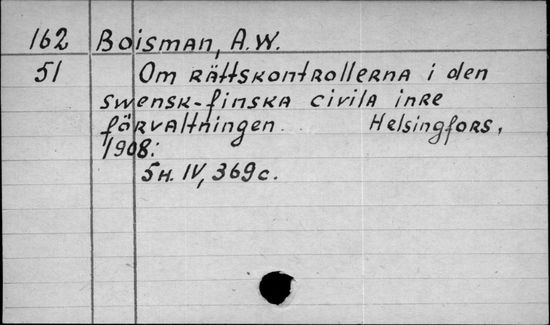 162 Boisman, A.W.
51 Om rättskontrollerna i den
swensk-finska civila inre
förvaltningen. Helsingfors,
1908.
5н. IV, 369с.